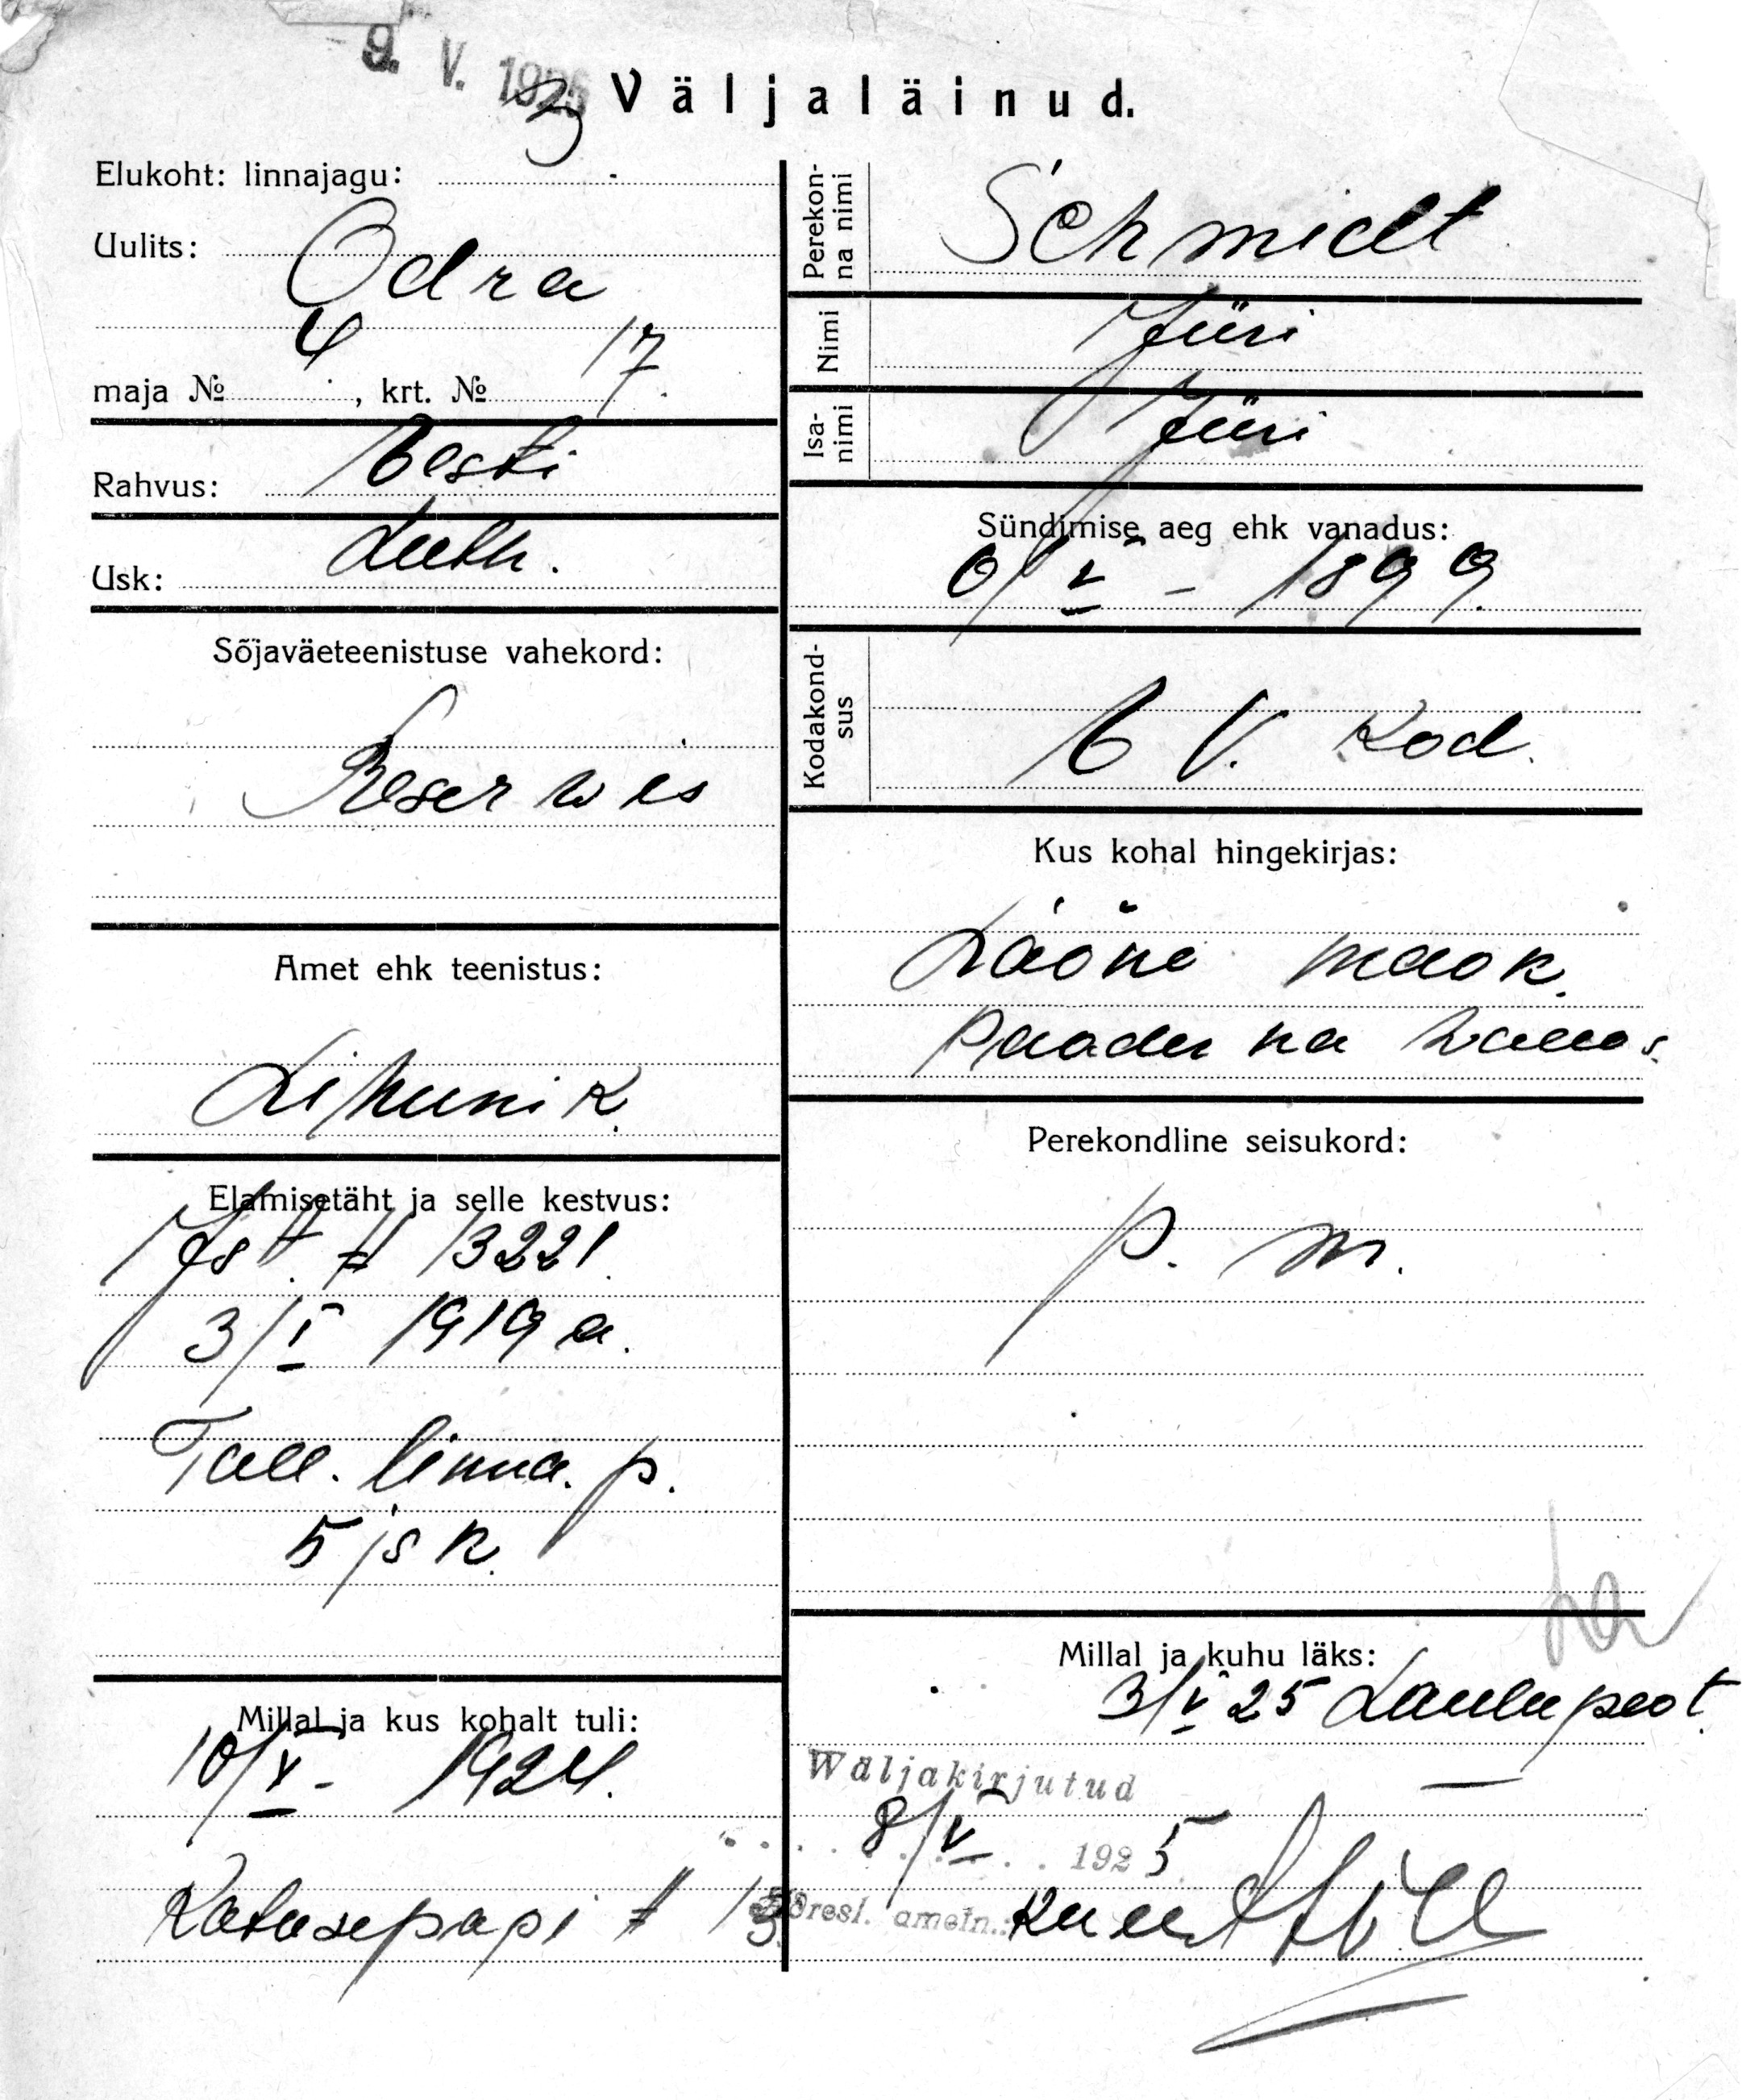 9. V. 1925
Väljaläinud.
Elukoht: linnajagu:
Uulits: Odra
maja № 4, krt. № 17.
Rahvus: Eesti
Usk: Luth.
Sõjaväeteenistuse vahekord:
Reserwis
Amet ehk teenistus:
Lihunik.
Elamisetäht ja selle kestvus:
Ist. # 13221.
3/I 1919 a.
Tall. linna. p.
5 jsk.
Millal ja kus kohalt tuli:
10/X - 1924.
Katusepapi #
Perekonna nimi
Schmidt
Nimi
Jüri
Isanimi
Jüri
Sündimise aeg ehk vanadus:
6/V - 1899.
Kodakondsus
E V. Kod.
Kus kohal hingekirjas:
Lääne maak.
Paadrema wallas.
Perekondline seisukord:
p. m.
Millal ja kuhu läks:
3/V 25 Laulupeo t.
Wäljakirjutud
8/V 1925
ametn.: